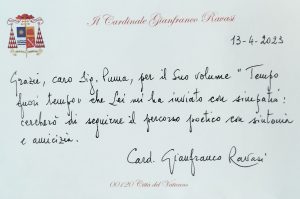 Il Cardinale Gianfranco Ravasi
13-4-2023
Grazie, caro Sig. Puma, per il Suo volume "Tempo
fuori tempo" che Lei mi ha inviato con simpatia:
cercherò di seguirne il percorso poetico con sintonia
e amicizia.
Card. Gianfranco Ravasi
00120 Città del Vaticano